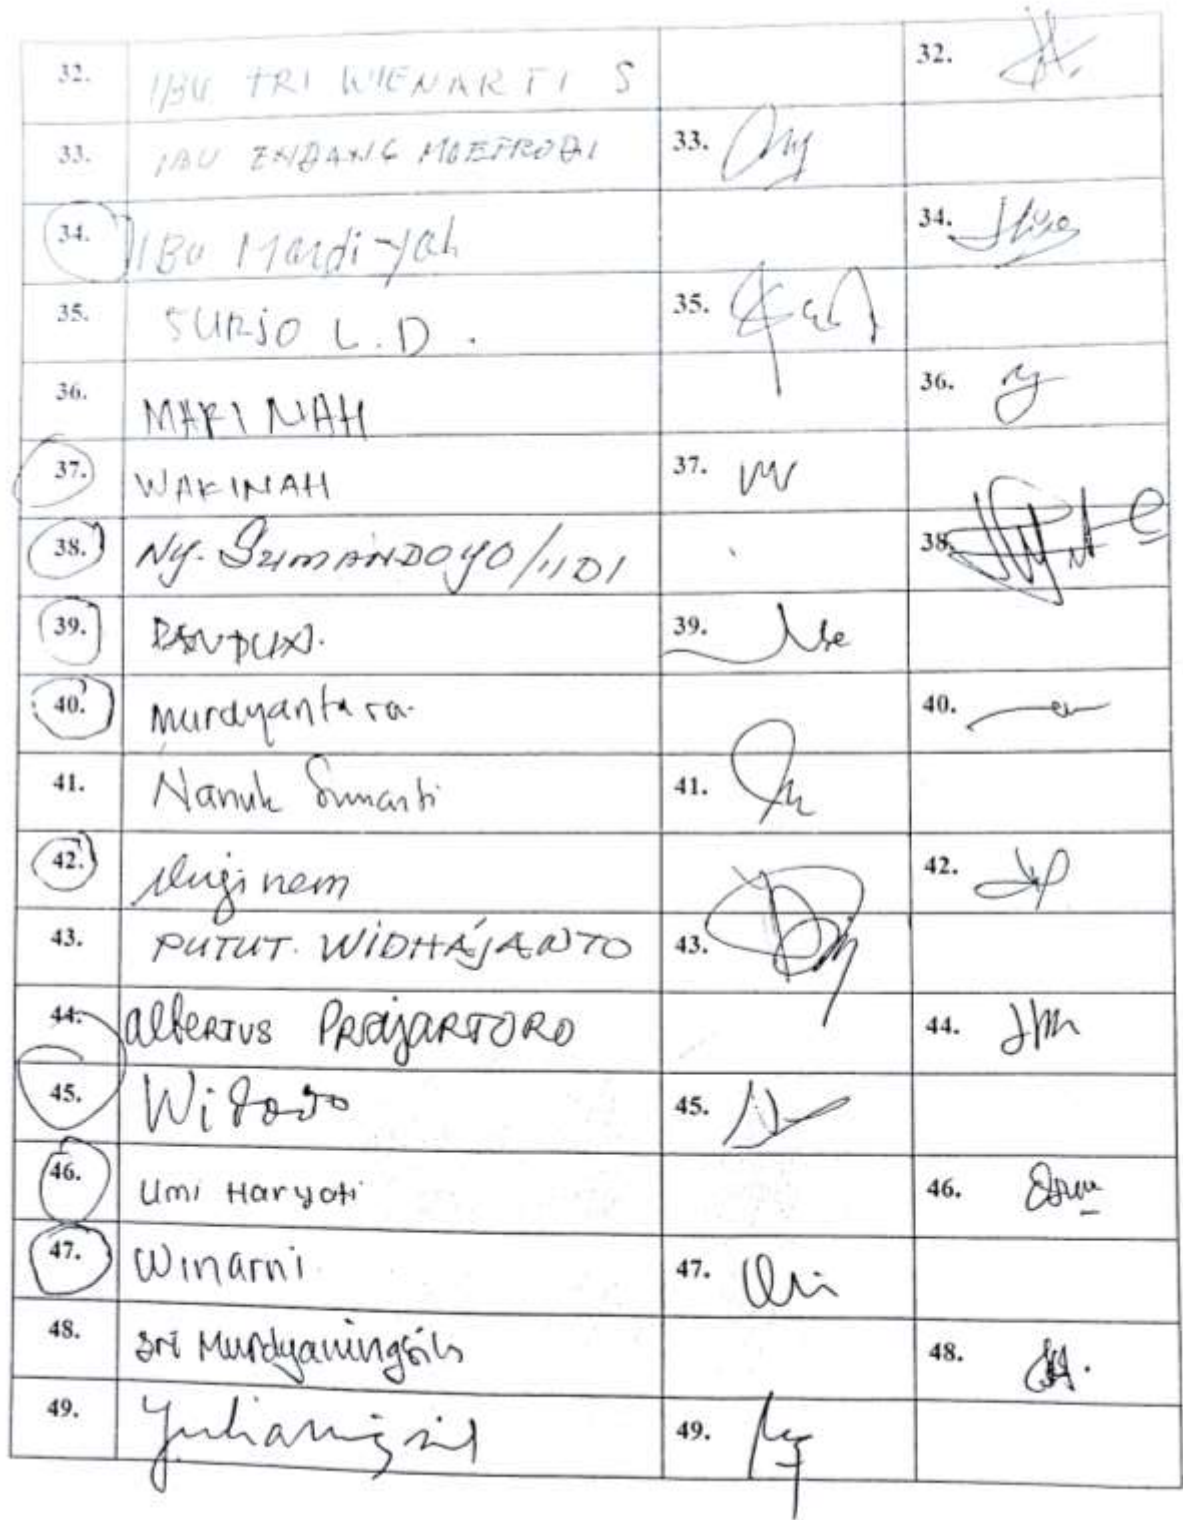 32. IBU TRI WIENARTI S 32.
33. IBU ENDANG MOEFRODI 33.
34. IBu Mardi-yah 34.
35. SURJO L.D. 35.
36. MARINAH 36.
37. WAKINAH 37.
38. NY. SUMANDOYO/ 38.
39. 39.
40. Murdyantara. 40.
41. Nanuk Sunarti 41.
42. 42.
43. PUTUT. WIDHAJANTO 43.
44. AlBERTUS PRAjARTORO 44.
45. Widodo 45.
46. Umi Haryati 46.
47. Winarni 47.
48. Sri Murdyaningsih 48.
49. 49.